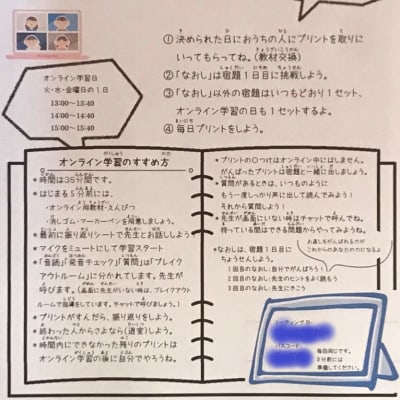 オンライン学習日
火・水・金曜日の1日
13:00～13:40
14:00～14:40
15:00～15:40
① 決められた日におうちの人にプリントを取りに
いってもらってね。(教材交換)
②「なおし」は宿題1日目に挑戦しよう。
③「なおし」以外の宿題はいつもどおり1セット、
オンライン学習の日も1セットするよ。
④ 毎日プリントをしよう。
オンライン学習のすすめ方
＊時間は35分間です。
＊はじまる5分前には、
・オンライン用教材・えんぴつ
・消しゴム・マーカーペンを用意しましょう。
＊最初に振り返りシートで先生とお話ししよう
＊マイクをミュートにして学習スタート
「音読」「発音チェック」「質問」は「ブレイク
アウトルーム」に分かれてします。先生が
呼びます。(画面に先生がいない時は、ブレイクアウト
ルームで指導をしています。チャットで呼びましょう。)
＊プリントがすんだら、振り返りをしよう。
＊終わった人からさよなら(退室)しよう。
＊時間内にできなかった残りのプリントは
オンライン学習の後に自分でやろうね。
＊プリントの○つけはオンライン中にはしません。
がんばったプリントは宿題と一緒に出しましょう。
＊質問があるときは、いつものように
もう一度しっかり声に出して読んでみよう！
それから質問しよう！
＊先生が画面にいない時はチャットで呼んでね。
待っている間はできる問題からやってみようね。
＊なおしは、宿題1日目に
ちょうせんしよう。
1回目のなおし:自分でがんばろう！
2回目のなおし:先生のヒントをよく読もう
3回目のなおし:先生にきこう
お直しをがんばれる力が
これからのあなたの力になるよ
ミーティングID
パスコード
毎回同じです。
3分前には
準備してください。